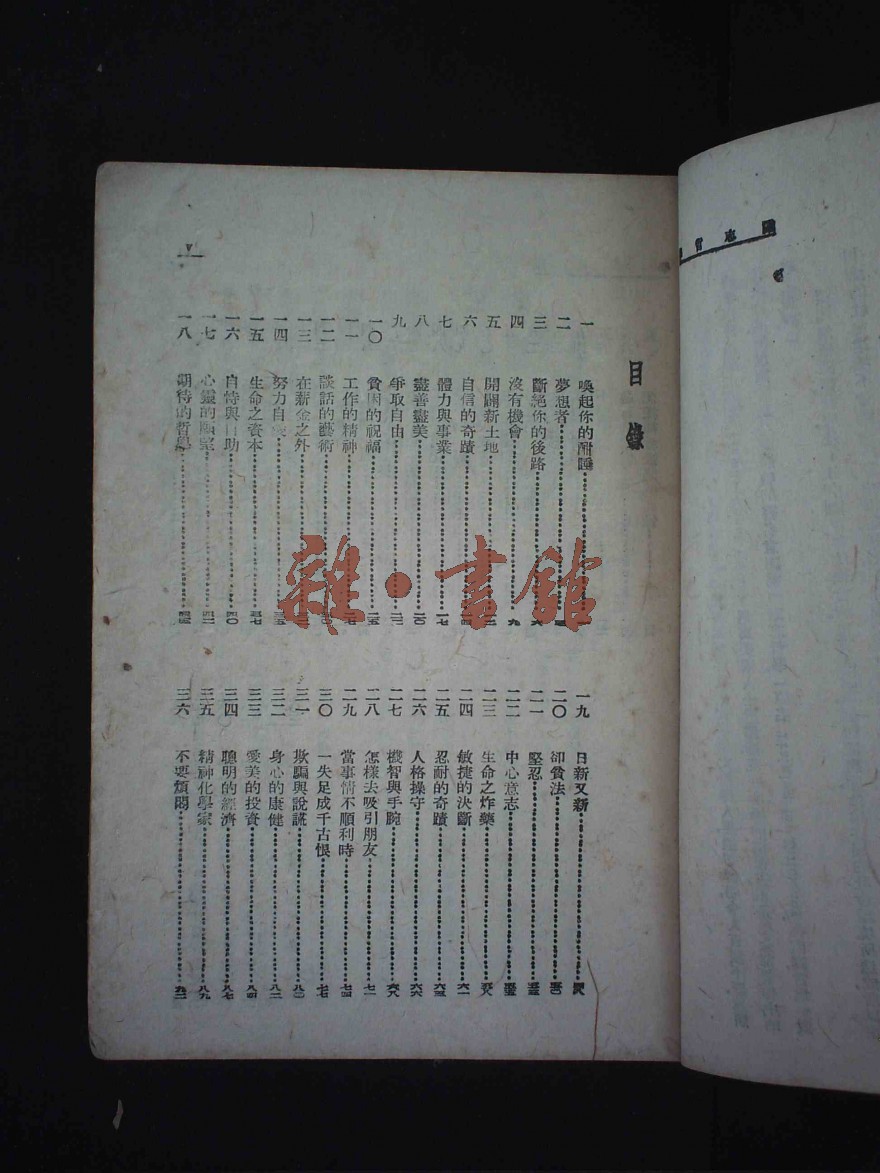 目錄
一 喚起你的酣睡
二 夢想者
三 斷絕你的後路
四 沒有機會
五 開闢新土地
六 自信的奇蹟
七 體力與事業
八 盡善盡美
九 爭取自由
一〇 貧困的祝福
一一 工作的精神
一二 談話的藝術
一三 在薪金之外
一四 努力自
一五 生命之資本
一六 自恃與自助
一七 心靈的
一八 期待的哲學
一九 日新又新 四八
二〇 卻貧法 五〇
二一 堅忍 五三
二二 中心意志
二三 生命之炸藥 五八
二四 敏捷的決斷 六一
二五 忍耐的奇蹟 六三
二六 人格操守 六六
二七 機智與手腕 六八
二八 怎樣去吸引朋友 七一
二九 當事情不順利時 七四
三〇 一失足成千古恨 七七
三一 欺騙與說謊 八〇
三二 身心的康健 八二
三三 愛美的投資 八四
三四 聰明的經濟 八七
三五 精神化學家 八九
三六 不要煩悶 九二
V
雜·書館